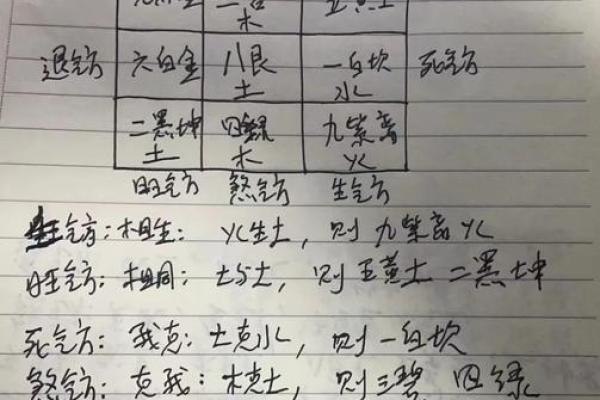 木
退气方 六白金 八艮 一白坎 死气方
土 水
二黑坤 四绿 九紫离
土 木 火
旺气方 煞气方 生气方
生气方：相生：火生土，则九紫离火
旺气方：相同：土与土，则五黄土 二黑坤
死气方：我克：土克水，则一白坎
煞气方：克我：木克土，则三碧 四绿